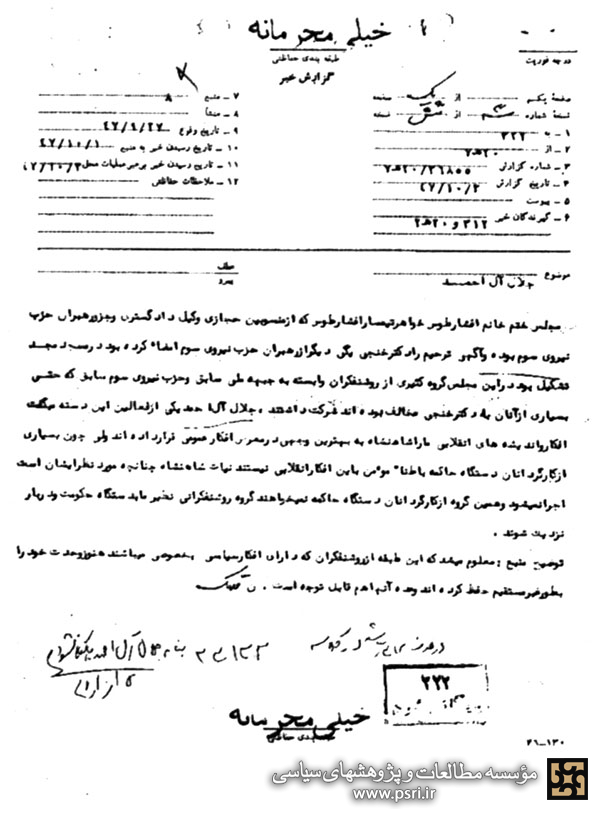 خیلی محرمانه
طبقه بندی حفاظتی
درجه فوریت
گزارش خبر
صفحه یکم از یک صفحه
نسخه شماره از نسخه
۱ - به ۳۲۲
۲ - از ۲۰ ه‍ ۷
۳ - شماره گزارش ۲۶۸۵۵/ ۲۰ ه‍ ۷
۴ - تاریخ گزارش ۴۷/۱۰/۲
۵ - پیوست
۶ - گیرندگان خبر ۳۱۲ و ۲۰ ه‍ ۲
۷ - منبع ۸
۸ - منشأ
۹ - تاریخ وقوع
۱۰ - تاریخ رسیدن خبر به منبع ۴۷/۱۰/۱
۱۱ - تاریخ رسیدن خبر برهبر عملیات محل
۱۲ - ملاحظات حفاظتی
موضوع جلال آل احمد
عطف
پیرو
مجلس ختم خانم افشارطوس خواهر تیمسار افشارطوس که از منسوبین حجازی وکیل دادگستری و جزو رهبران حزب
نیروی سوم بوده و آگهی ترحیم را دکتر خنجی یکی دیگر از رهبران حزب نیروی سوم امضاء کرده بود در مسجد مجد
تشکیل بود در این مجلس گروه کثیری از روشنفکران وابسته به جبهه ملی سابق و حزب نیروی سوم سابق که حتی
بسیاری از آنان با دکتر خنجی مخالف بوده اند شرکت داشتند . جلال آل احمد یکی از فعالین این دسته میگفت
افکار و اندیشه های انقلابی ما را شاهنشاه به بهترین وجهی در معرض افکار عمومی قرار داده اند ولی چون بسیاری
از کارگردانان دستگاه حاکمه باطنا" مؤمن باین افکار انقلابی نیستند نیات شاهنشاه چنانچه مورد نظرایشان است
اجرا نمیشود و همین گروه از کارگردانان دستگاه حاکمه نمیخواهند گروه روشنفکرانی نظیر ما بدستگاه حکومت و دربار
نزدیک شوند .
توضیح منبع : معلوم میشد که این طبقه از روشنفکران که دارای افکار سیاسی بخصوصی میباشند هنوز وحدت خود را
بطور غیر مستقیم حفظ کرده اند و عده آنها هم قابل توجه است .
۳۲۲
خیلی محرمانه
طبقه بندی حفاظتی
۲۱-۱۳۰
مؤسسه مطالعات و پژوهشهای سیاسی
www.psri.ir